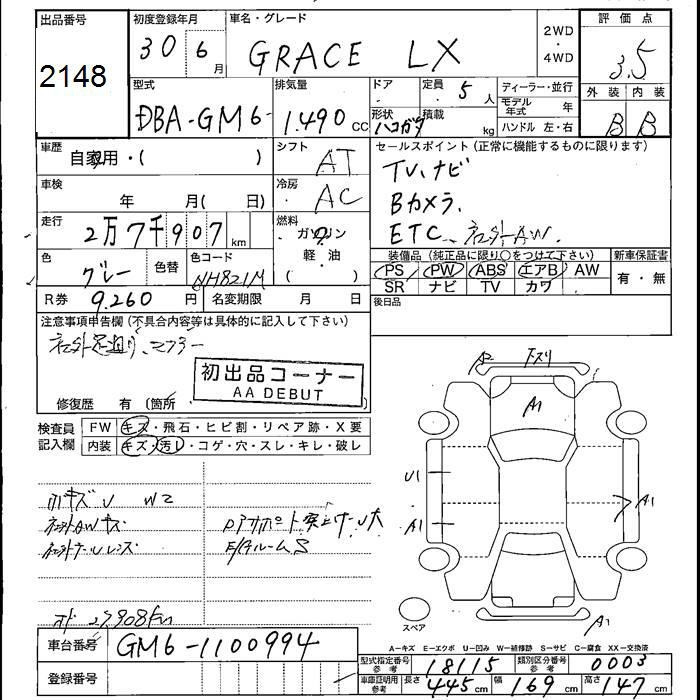 出品番号 初度登録年月 車名・グレード 2WD・4WD 評価点
2148 30 6月 GRACE LX 3.5
型式 排気量 ドア 定員 5人 ディーラー・並行 外装 内装
DBA-GM6- 1.490cc 形状 ハコガタ 積載 kg モデル年式 年 B B
ハンドル 左・右
車歴 シフト セールスポイント (正常に機能するものに限ります)
自家用・( ) AT TV、ナビ
車検 冷房
年 月( 日) AC Bカメラ、
走行 燃料
2万7千907km ガソリン ETC、社外AW、
軽・油
( )
色 色替 色コード 装備品(純正品に限り○をつけて下さい) 新車保証書
グレー NH821M PS PW ABS エアB AW 有・無
SR ナビ TV カワ
R券 9.260円 名変期限 月 日 後日品
注意事項申告欄(不具合内容等は具体的に記入して下さい)
初出品コーナー
AA DEBUT
修復歴 有(箇所 )
検査員記入欄 FW キズ・飛石・ヒビ割・リペア跡・X要
内装 キズ・汚レ・コゲ・穴・スレ・キレ・破レ
A2 下スリ
A1
U1 A1
A1
小キズ U W2
社外AWキズ
27908km
A1
スペア
A-キズ E-エクボ U-凹み W-補修跡 S-サビ C-腐食 XX-交換済
車台番号 GM6-1100994
型式指定番号 参考 18115 類別区分番号 参考 0003
登録番号
車庫証明用 参考 長さ 445cm 幅 169cm 高さ 147cm